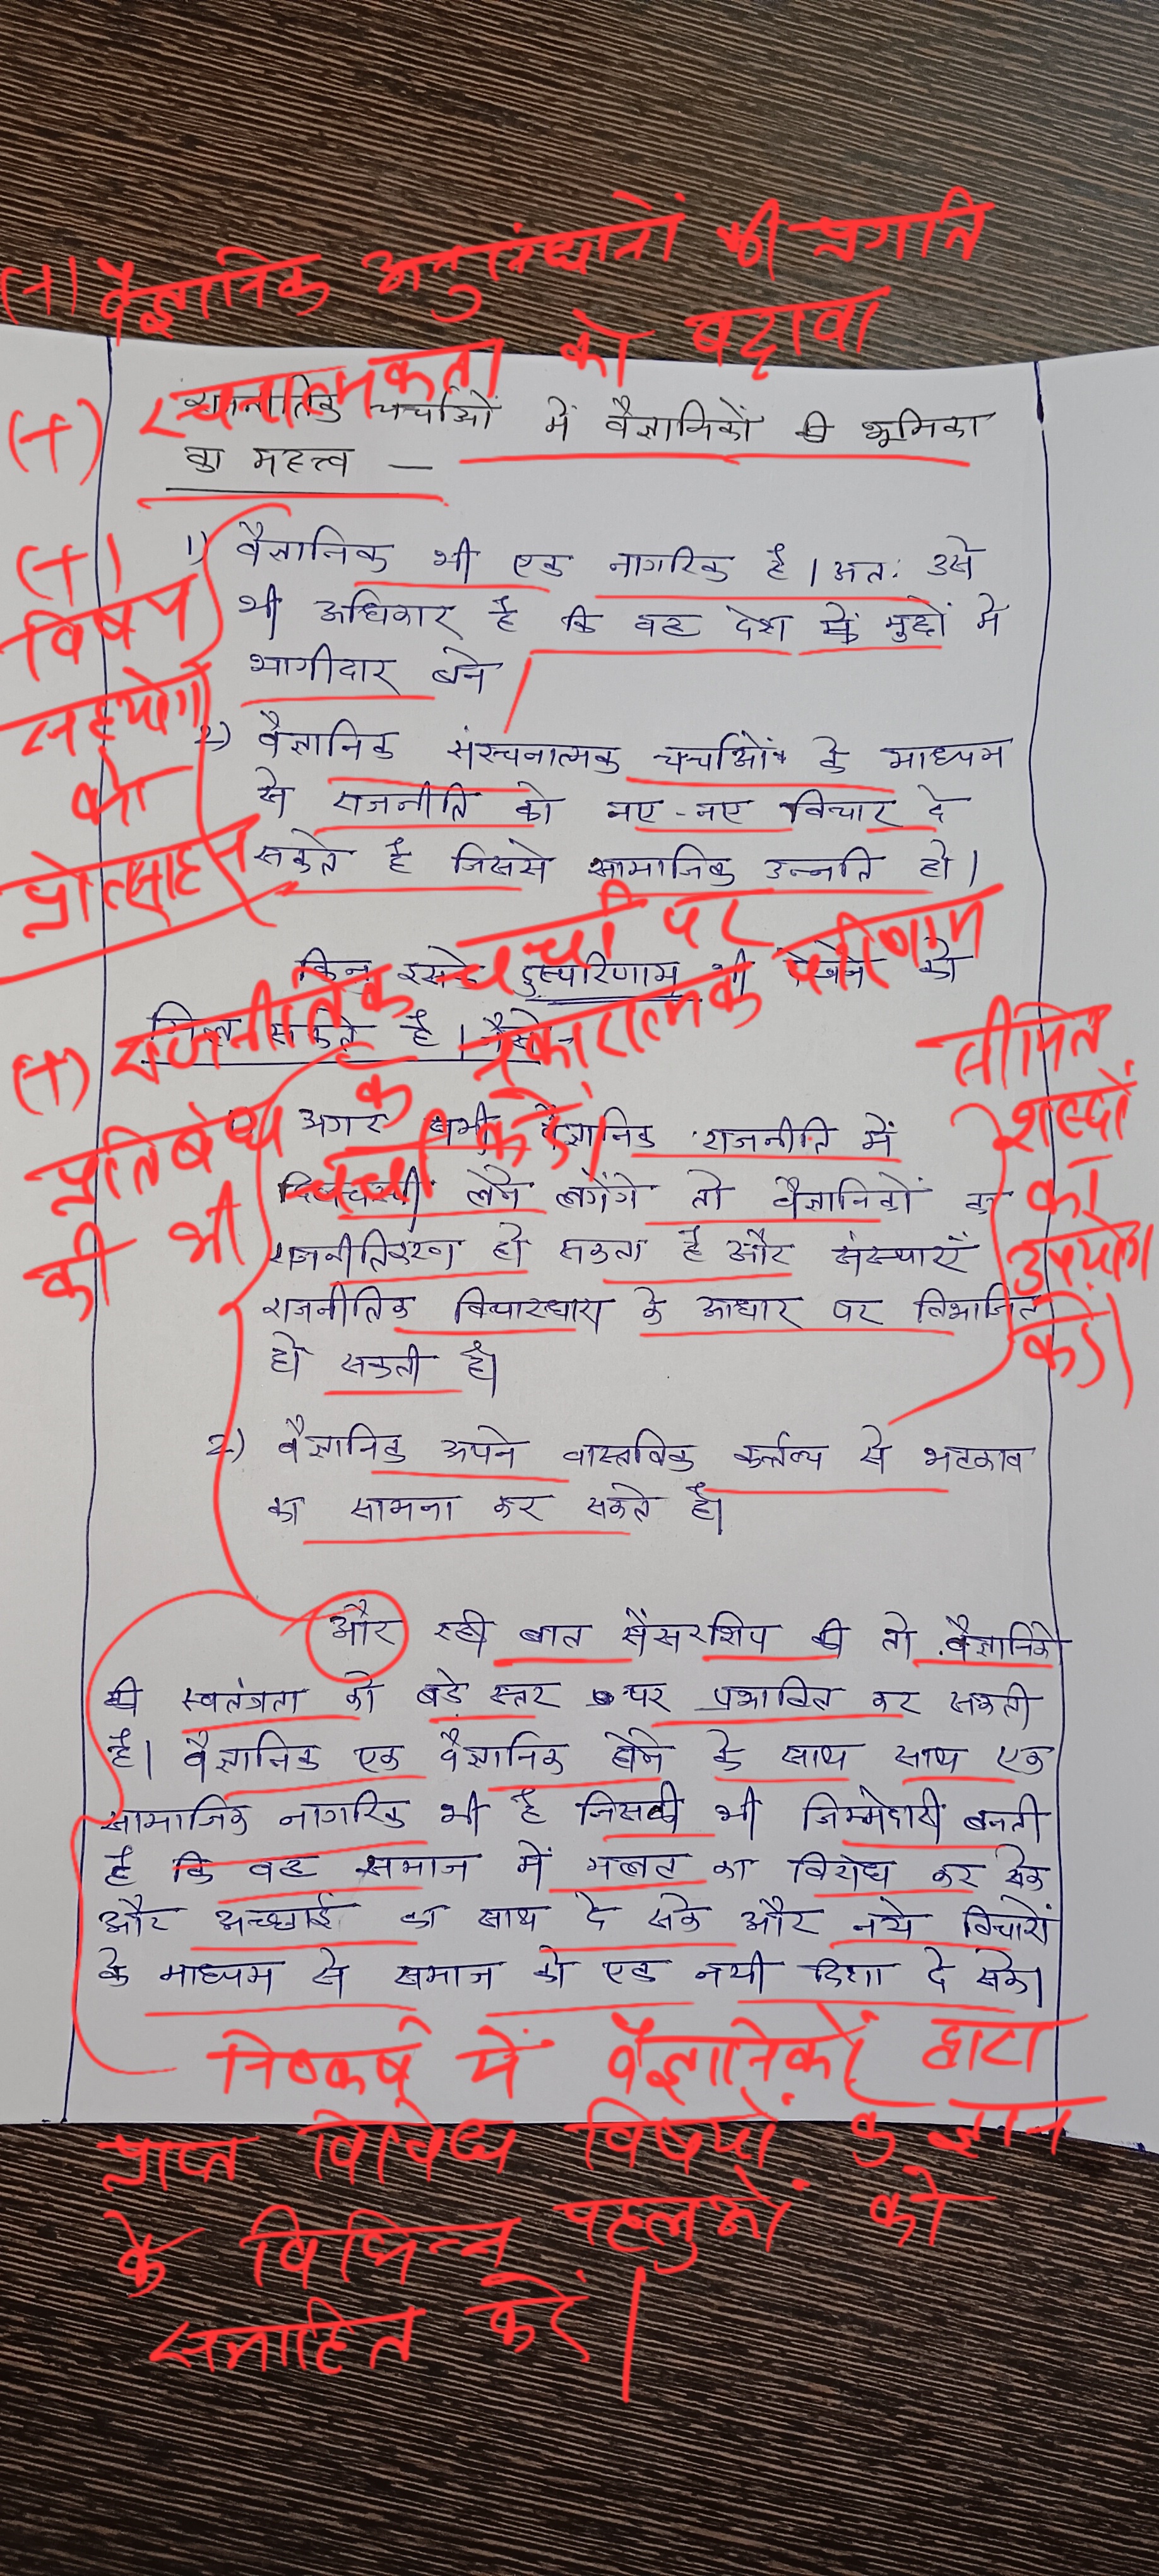 (+) वैज्ञानिक अनुसंधानों की प्रगति
(+) रचनात्मकता को बढ़ावा
राजनीतिक चर्चाओं में वैज्ञानिकों की भूमिका
का महत्त्व —
1) वैज्ञानिक भी एक नागरिक है। अतः उसे
भी अधिकार है कि वह देश के मुद्दों में
भागीदार बने
(+)
विषय
सहयोग
को
प्रोत्साहन
2) वैज्ञानिक संरचनात्मक चर्चाओं के माध्यम
से राजनीति को नए-नए विचार दे
सकते है जिससे सामाजिक उन्नति हो।
इसके दुष्परिणाम भी देखने को
मिल सकते है। जैसे
(+) राजनीतिक चर्चा पर
प्रतिबंध के नकारात्मक परिणाम
की भी चर्चा करें।
अगर सभी वैज्ञानिक राजनीति में
दिलचस्पी लेने लगेंगे तो वैज्ञानिकों का
राजनीतिकरण हो सकता है और संस्थाएँ
राजनीतिक विचारधारा के आधार पर विभाजित
हो सकती है।
सीमित
शब्दों
का
उपयोग
करें।
2) वैज्ञानिक अपने वास्तविक कर्त्तव्य से भटकाव
का सामना कर सकते है।
और रही बात सैंसरशिप की तो वैज्ञानिकों
की स्वतंत्रता को बड़े स्तर पर प्रभावित कर सकती
है। वैज्ञानिक एक वैज्ञानिक होने के साथ साथ एक
सामाजिक नागरिक भी है जिसकी भी जिम्मेदारी बनती
है कि वह समाज में गलत का विरोध कर सके
और अच्छाई का साथ दे सके और नये विचारों
के माध्यम से समाज को एक नयी दिशा दे सके।
निष्कर्ष में वैज्ञानिकों द्वारा
प्राप्त विविध विषयों के ज्ञान
के विभिन्न पहलुओं को
समाहित करें।